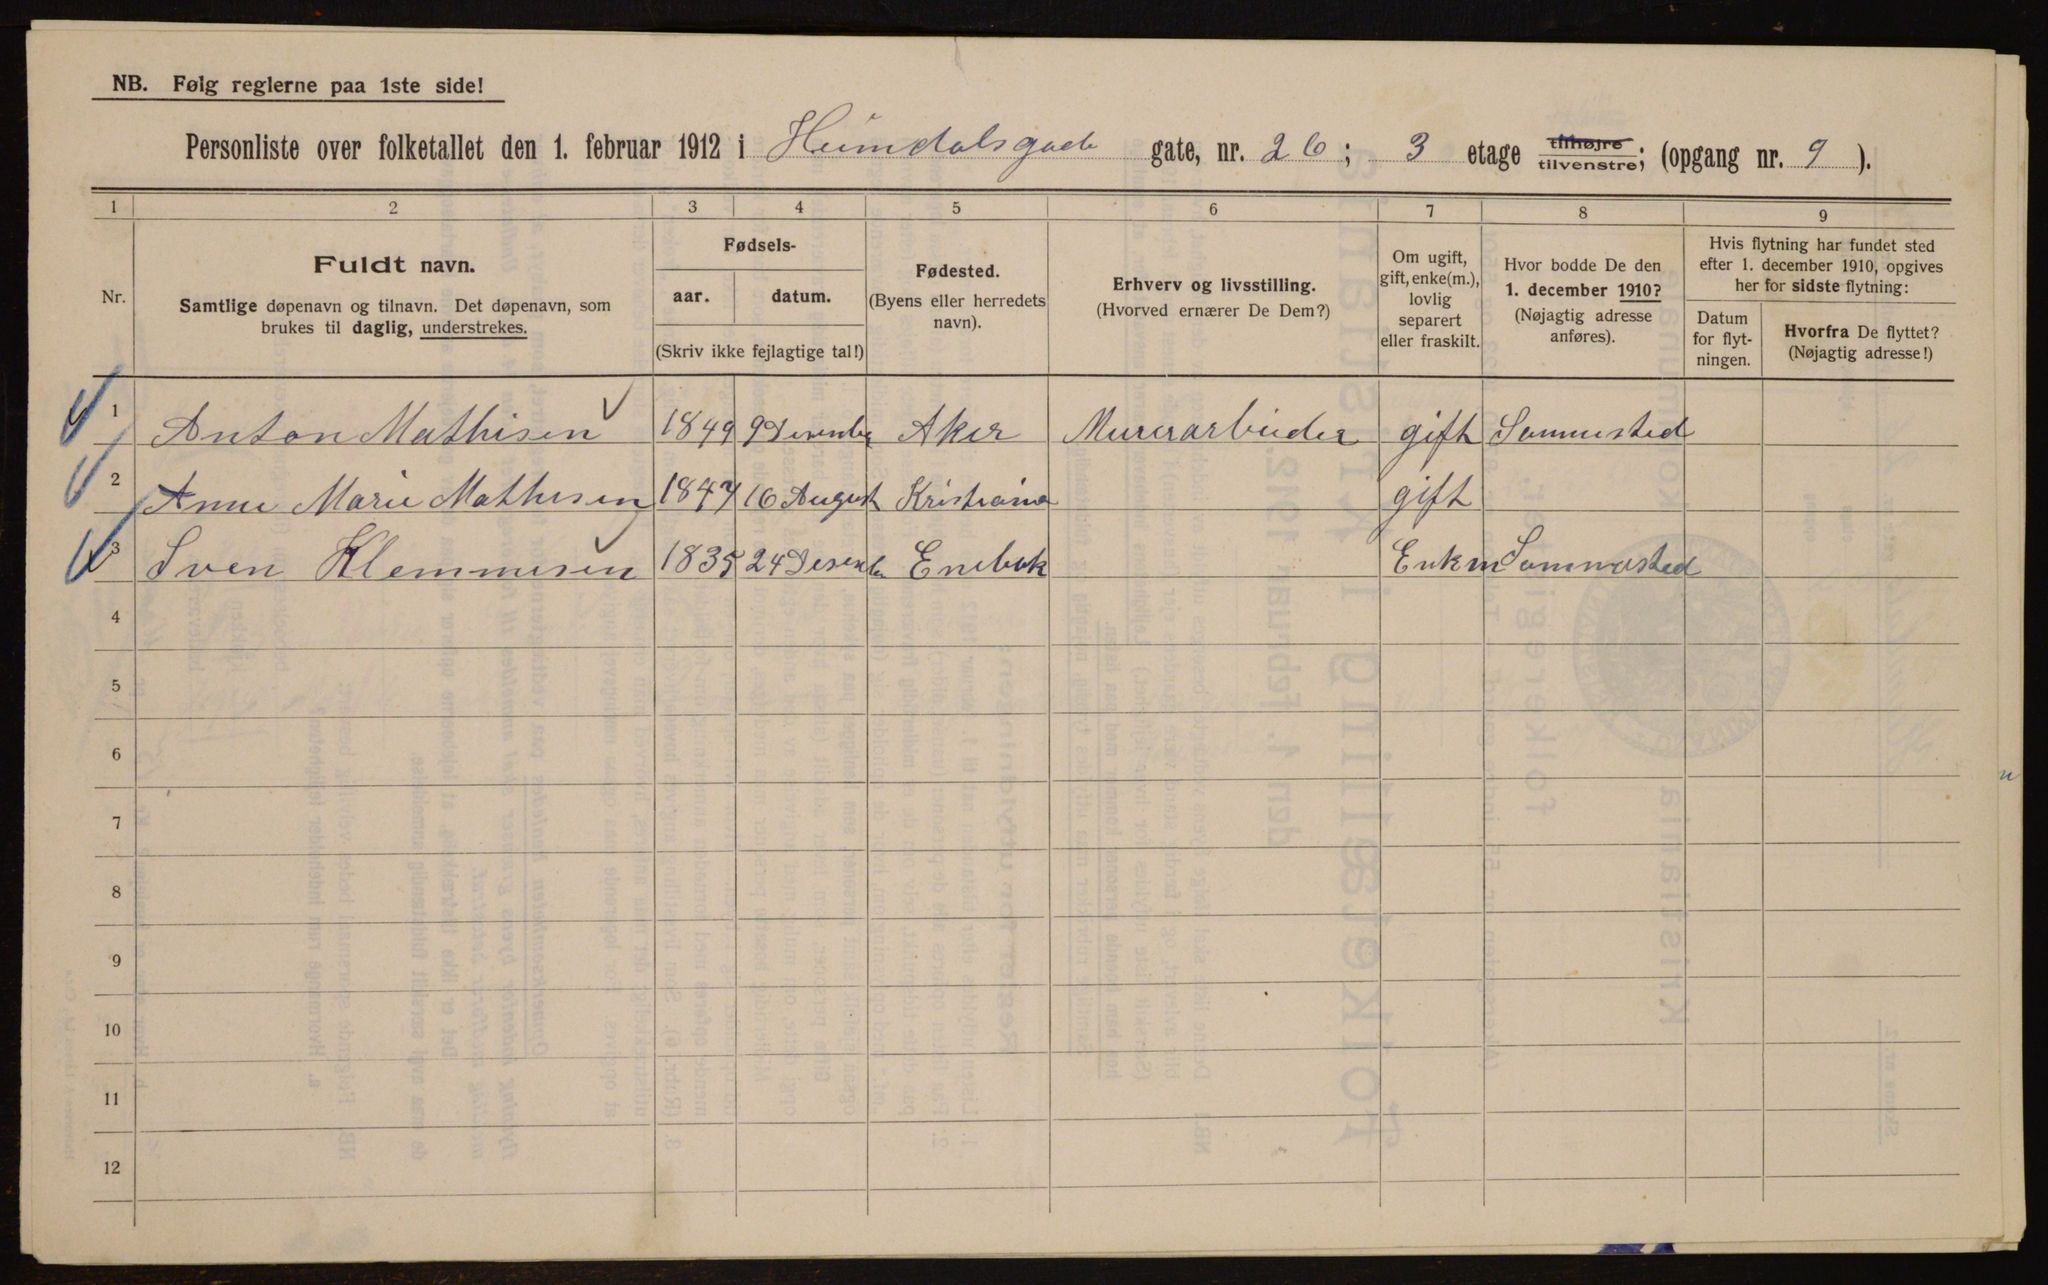 NB. Følg reglerne paa 1ste side!
Personliste over folketallet den 1. februar 1912 i Heimdalsgade gate, nr. 26; 3 etage tilhøjre tilvenstre; (opgang nr. 9).
1 2 3 4 5 6 7 8 9
Nr.
Fuldt navn.
Samtlige døpenavn og tilnavn. Det døpenavn, som
brukes til daglig, understrekes.
Fødsels-
aar. datum.
(Skriv ikke fejlagtige tal!)
Fødested.
(Byens eller herredets
navn).
Erhverv og livsstilling.
(Hvorved ernærer De Dem?)
Om ugift,
gift, enke(m.),
lovlig
separert
eller fraskilt.
Hvor bodde De den
1. december 1910?
(Nøjagtig adresse
anføres).
Hvis flytning har fundet sted
efter 1. december 1910, opgives
her for sidste flytning:
Datum
for flyt-
ningen.
Hvorfra De flyttet?
(Nøjagtig adresse!)
1 Anton Mathisen 1849 9 Desember Aker Murerarbeider gift Sammested
2 Anne Marie Mathisen 1847 16 August Kristiania gift
3 Sven Klemmesen 1835 24 Desember Enebak Enkm Sammested
4
5
6
7
8
9
10
11
12